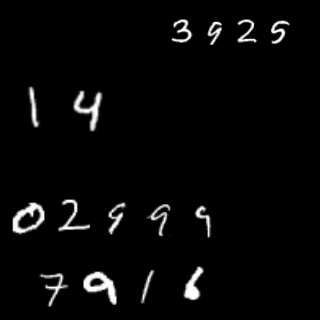 3925
14
02999
7916